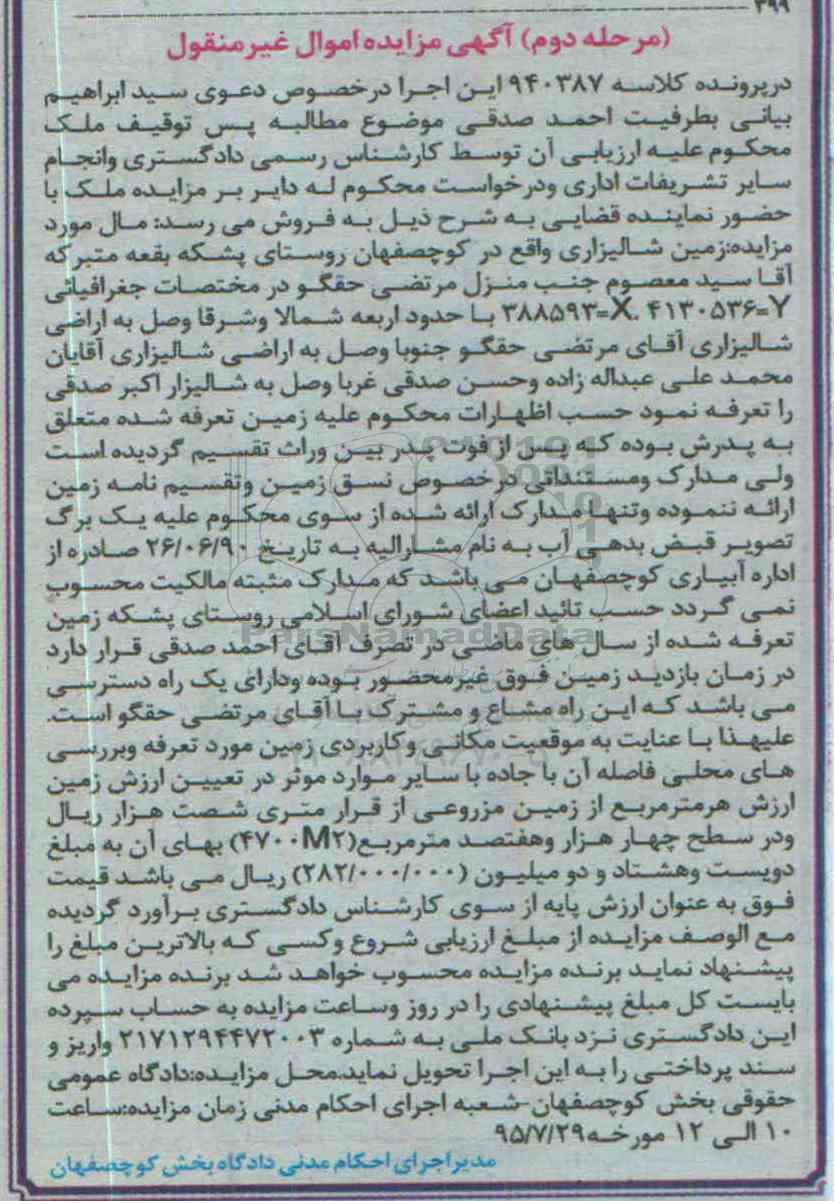 ۳۹۹
(مرحله دوم) آگهی مزایده اموال غیرمنقول
درپرونده کلاسه ۹۴۰۳۸۷ این اجرا درخصوص دعوی سید ابراهیم
بیانی بطرفیت احمد صدقی موضوع مطالبه پس توقیف ملک
محکوم علیه ارزیابی آن توسط کارشناس رسمی دادگستری وانجام
سایر تشریفات اداری ودرخواست محکوم له دایر بر مزایده ملک با
حضور نماینده قضایی به شرح ذیل به فروش می رسد: مال مورد
مزایده:زمین شالیزاری واقع در کوچصفهان روستای پشکه بقعه متبرکه
آقا سید معصوم جنب منزل مرتضی حقگو در مختصات جغرافیائی
Y=۴۱۳۰۵۳۶ .X=۳۸۸۵۹۳ با حدود اربعه شمالا وشرقا وصل به اراضی
شالیزاری آقای مرتضی حقگو جنوبا وصل به اراضی شالیزاری آقایان
محمد علی عبداله زاده وحسن صدقی غربا وصل به شالیزار اکبر صدقی
را تعرفه نمود حسب اظهارات محکوم علیه زمین تعرفه شده متعلق
به پدرش بوده که پس از فوت پدر بین وراث تقسیم گردیده است
ولی مدارک ومستنداتی درخصوص نسق زمین وتقسیم نامه زمین
ارائه ننموده وتنها مدارک ارائه شده از سوی محکوم علیه یک برگ
تصویر قبض بدهی آب به نام مشارالیه به تاریخ ۲۶/۰۶/۹۰ صادره از
اداره آبیاری کوچصفهان می باشد که مدارک مثبته مالکیت محسوب
نمی گردد حسب تائید اعضای شورای اسلامی روستای پشکه زمین
تعرفه شده از سال های ماضی در تصرف آقای احمد صدقی قرار دارد
در زمان بازدید زمین فوق غیرمحضور بوده ودارای یک راه دسترسی
می باشد که این راه مشاع و مشترک با آقای مرتضی حقگو است.
علیهذا با عنایت به موقعیت مکانی وکاربردی زمین مورد تعرفه وبررسی
های محلی فاصله آن با جاده با سایر موارد موثر در تعیین ارزش زمین
ارزش هرمترمربع از زمین مزروعی از قرار متری شصت هزار ریال
ودر سطح چهار هزار وهفتصد مترمربع(۴۷۰۰M۲) بهای آن به مبلغ
دویست وهشتاد و دو میلیون (۲۸۲/۰۰۰/۰۰۰) ریال می باشد قیمت
فوق به عنوان ارزش پایه از سوی کارشناس دادگستری برآورد گردیده
مع الوصف مزایده از مبلغ ارزیابی شروع وکسی که بالاترین مبلغ را
پیشنهاد نماید برنده مزایده محسوب خواهد شد برنده مزایده می
بایست کل مبلغ پیشنهادی را در روز وساعت مزایده به حساب سپرده
این دادگستری نزد بانک ملی به شماره ۲۱۷۱۲۹۴۴۷۲۰۰۳ واریز و
سند پرداختی را به این اجرا تحویل نماید.محل مزایده:دادگاه عمومی
حقوقی بخش کوچصفهان-شعبه اجرای احکام مدنی زمان مزایده:ساعت
۱۰ الی ۱۲ مورخه۹۵/۷/۲۹
مدیراجرای احکام مدنی دادگاه بخش کوچصفهان
ParsNamadData